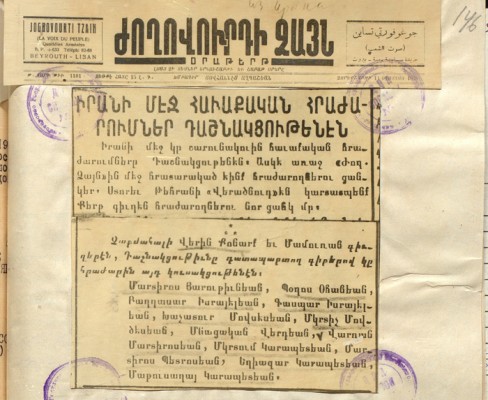 146
JOGHOVOURTI TZAIN
(LA VOIX DU PEUPLE)
BEYROUTH - LIBAN
ԺՈՂՈՎՈՒՐԴԻ ՁԱՅՆ
ՕՐԱԹԵՐԹ
جوغوفورتي تساين
(صوت الشعب)
ԻՐԱՆԻ ՄԷՋ ՀԱՒԱՔԱԿԱՆ ՀՐԱԺԱ-
ՐՈՒՄՆԵՐ ԴԱՇՆԱԿՑՈՒԹԵՆԷՆ
Իրանի մէջ կը շարունակուին հաւաքական հրա-
ժարումները Դաշնակցութենէն։ Ասկէ առաջ «Ժող.
Ձայն»ին մէջ հրատարակած էինք հրաժարողներու ցան-
կեր։ Ստորեւ Թեհրանի «Վերածնունդ»էն կարտատպենք
Քերբ գիւղէն հրաժարողներու նոր ցանկ մը.
Չարմահալի Վերին Քօնարք եւ Մամուռան գիւ-
ղերէն, Դաշնակցութիւնը դատապարտող գիրերով կը
հրաժարին այդ կուսակցութենէն։
Մարտիրոս Յարութիւնեան, Պօղոս Օհանեան,
Բաղդասար Իսրայէլեան, Գասպար Իսրայէլ-
եան, Խաչատուր Մովսիսեան, Մկրտիչ Մով-
սիսեան, Մնացական Վերդեան, Վարդան
Մարտիրոսեան, Մկրտում Կարապետեան, Մար-
տիրոս Պետրոսեան, Եղիազար Կարապետեան,
Մաթուսաղայ Կարապետեան.